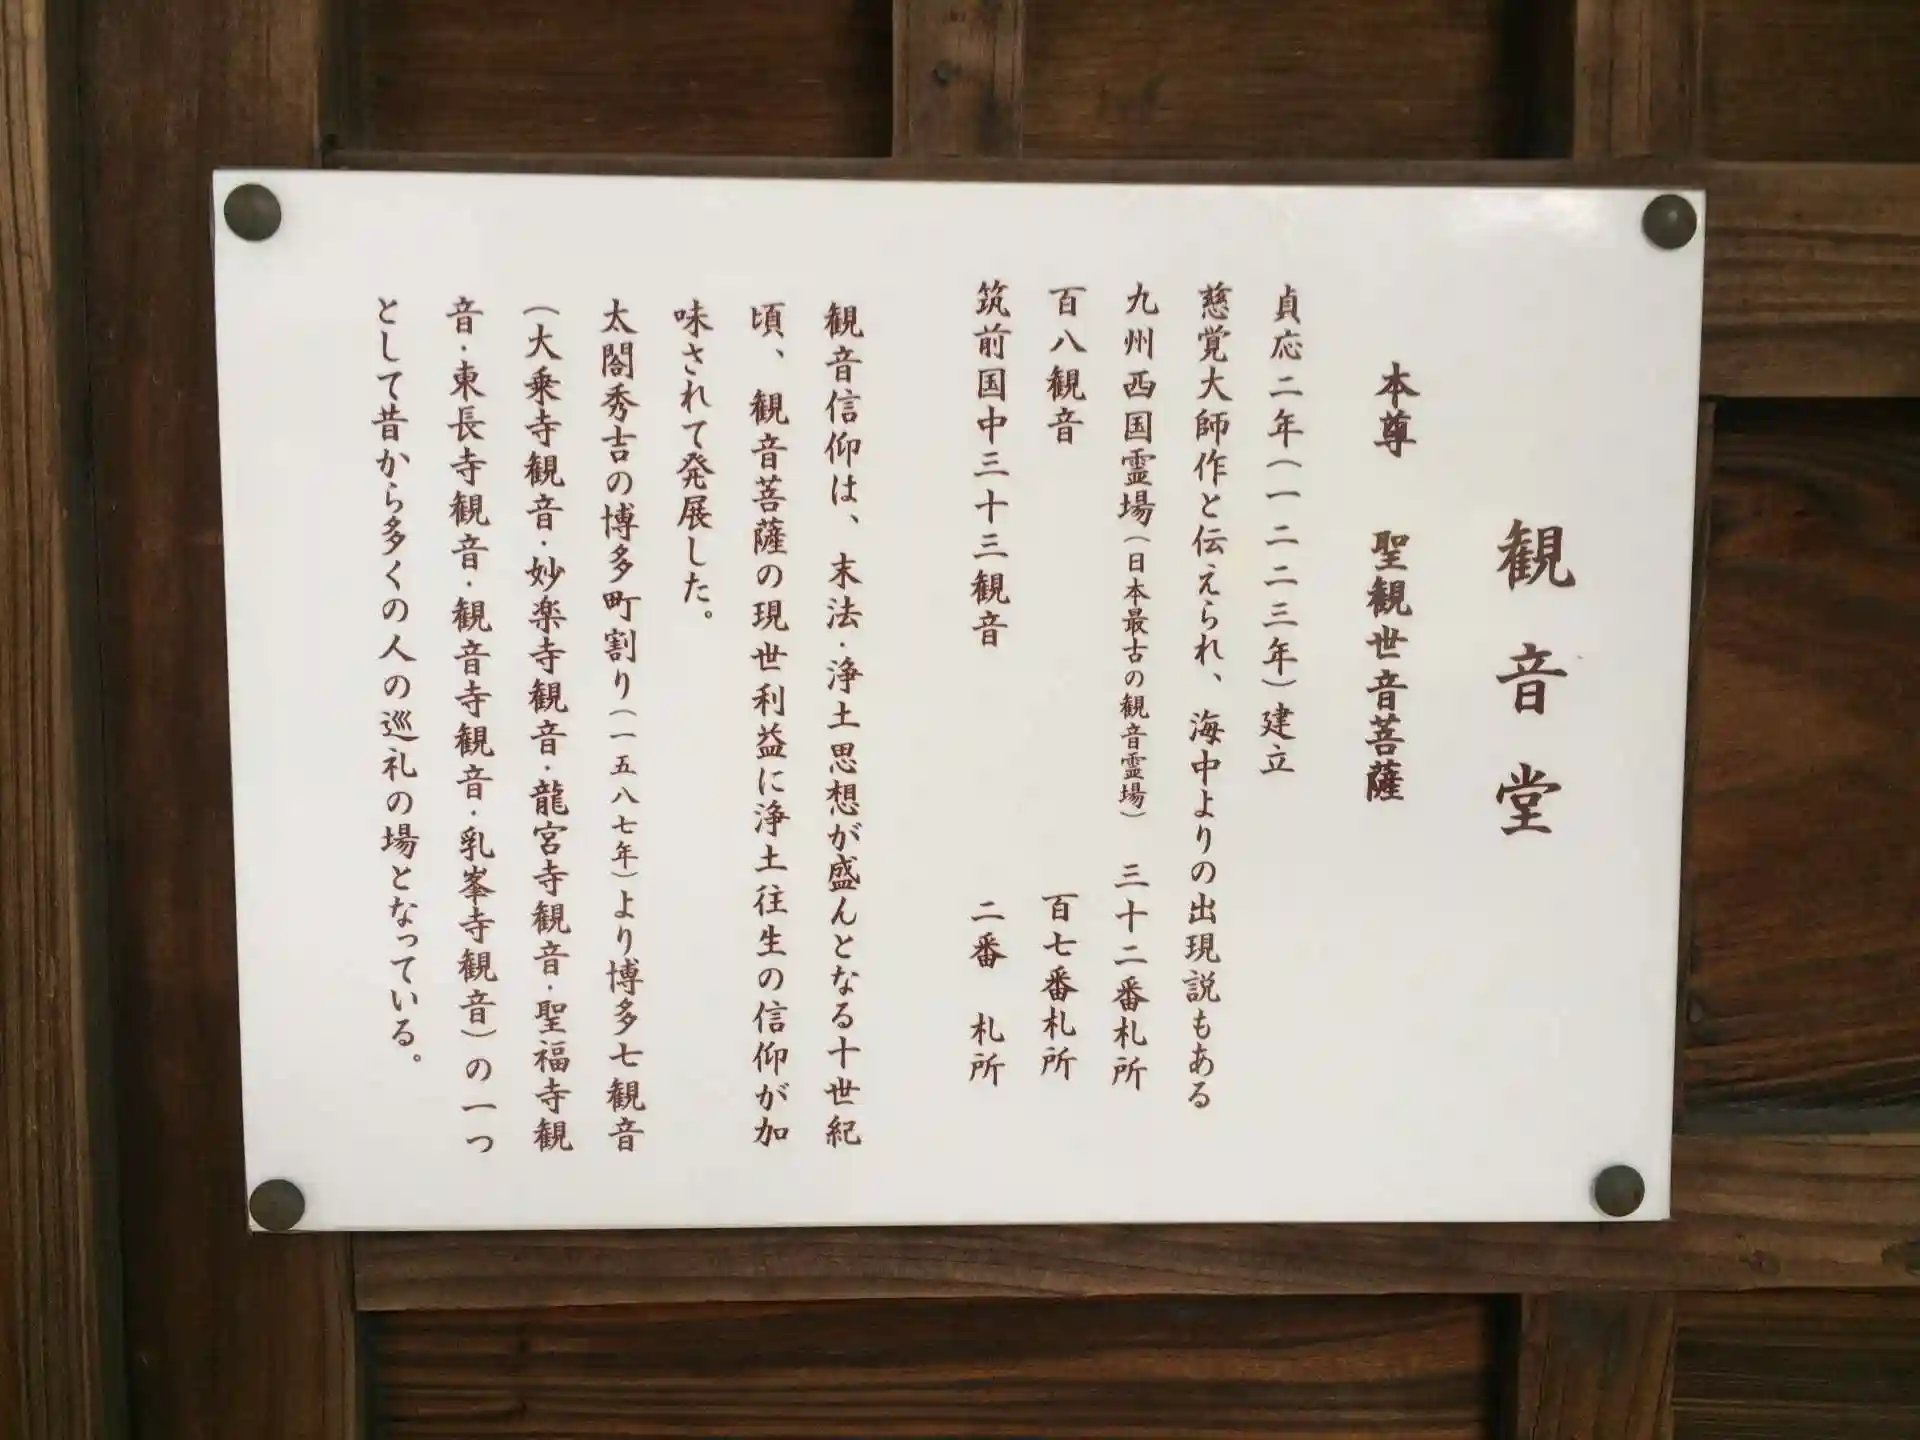 観音堂
本尊 聖観世音菩薩
貞応二年(一二二三年)建立
慈覚大師作と伝えられ、海中よりの出現説もある
九州西国霊場(日本最古の観音霊場) 三十二番札所
百八観音 百七番札所
筑前国中三十三観音 二番 札所
観音信仰は、末法・浄土思想が盛んとなる十世紀
頃、観音菩薩の現世利益に浄土往生の信仰が加
味されて発展した。
太閤秀吉の博多町割り(一五八七年)より博多七観音
(大乗寺観音・妙楽寺観音・龍宮寺観音・聖福寺観
音・東長寺観音・観音寺観音・乳峯寺観音)の一つ
として昔から多くの人の巡礼の場となっている。